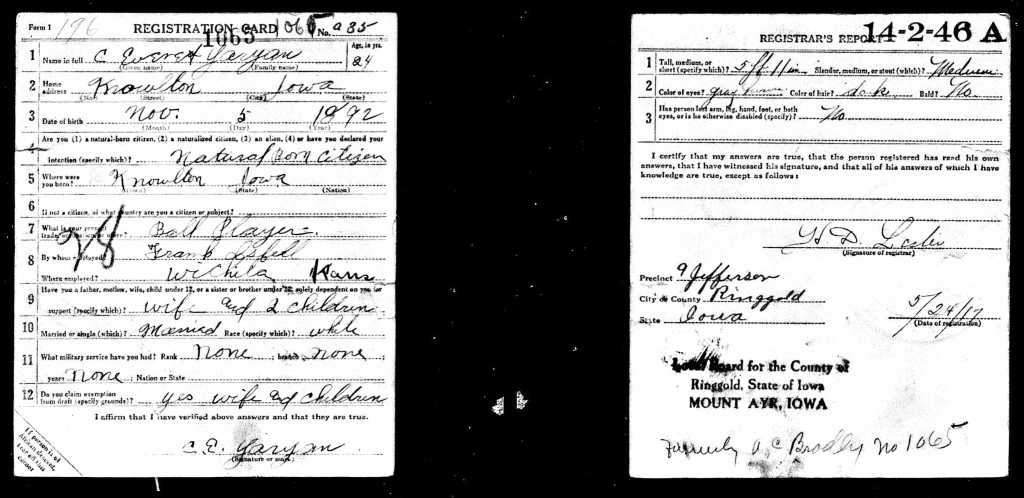 Form 1 196 REGISTRATION CARD 1065 No. 935
1065
1 Name in full C Everet Yaryan Age, in yrs. 24
(Given name) (Family name)
2 Home address Knowlton Iowa
(No.) (Street) (City) (State)
3 Date of birth Nov. 5 1892
(Month) (Day) (Year)
Are you (1) a natural-born citizen, (2) a naturalized citizen, (3) an alien, (4) or have you declared your
4 intention (specify which)? Natural born citizen
5 Where were you born? Knowlton Iowa
(Town) (State) (Nation)
6 If not a citizen, of what country are you a citizen or subject?
7 What is your present trade, occupation, or office? Ball Player
28
8 By whom employed? Frank
Where employed? Wichita Kans
9 Have you a father, mother, wife, child under 12, or a sister or brother under 12, solely dependent on you for
support (specify which)? wife and 2 children
10 Married or single (which)? Married Race (specify which)? white
11 What military service have you had? Rank None ; branch none ;
years None ; Nation or State
12 Do you claim exemption from draft (specify grounds)? yes wife and children
I affirm that I have verified above answers and that they are true.
C. E. Yaryan
(Signature or mark)
If person is of
African descent,
tear off this
corner
14-2-46 A
REGISTRAR'S REPORT
1 Tall, medium, or short (specify which)? 5 ft 11 in Slender, medium, or stout (which)? Medium
2 Color of eyes? gray Color of hair? dark Bald? No
3 Has person lost arm, leg, hand, foot, or both eyes, or is he otherwise disabled (specify)? No
I certify that my answers are true, that the person registered has read his own
answers, that I have witnessed his signature, and that all of his answers of which I have
knowledge are true, except as follows:
H D. Leslie
(Signature of registrar)
Precinct 9 Jefferson
City or County Ringgold
State Iowa
5/24/17
(Date of registration)
Local Board for the County of
Ringgold, State of Iowa
MOUNT AYR, IOWA
Formerly A C Bradley no 1065